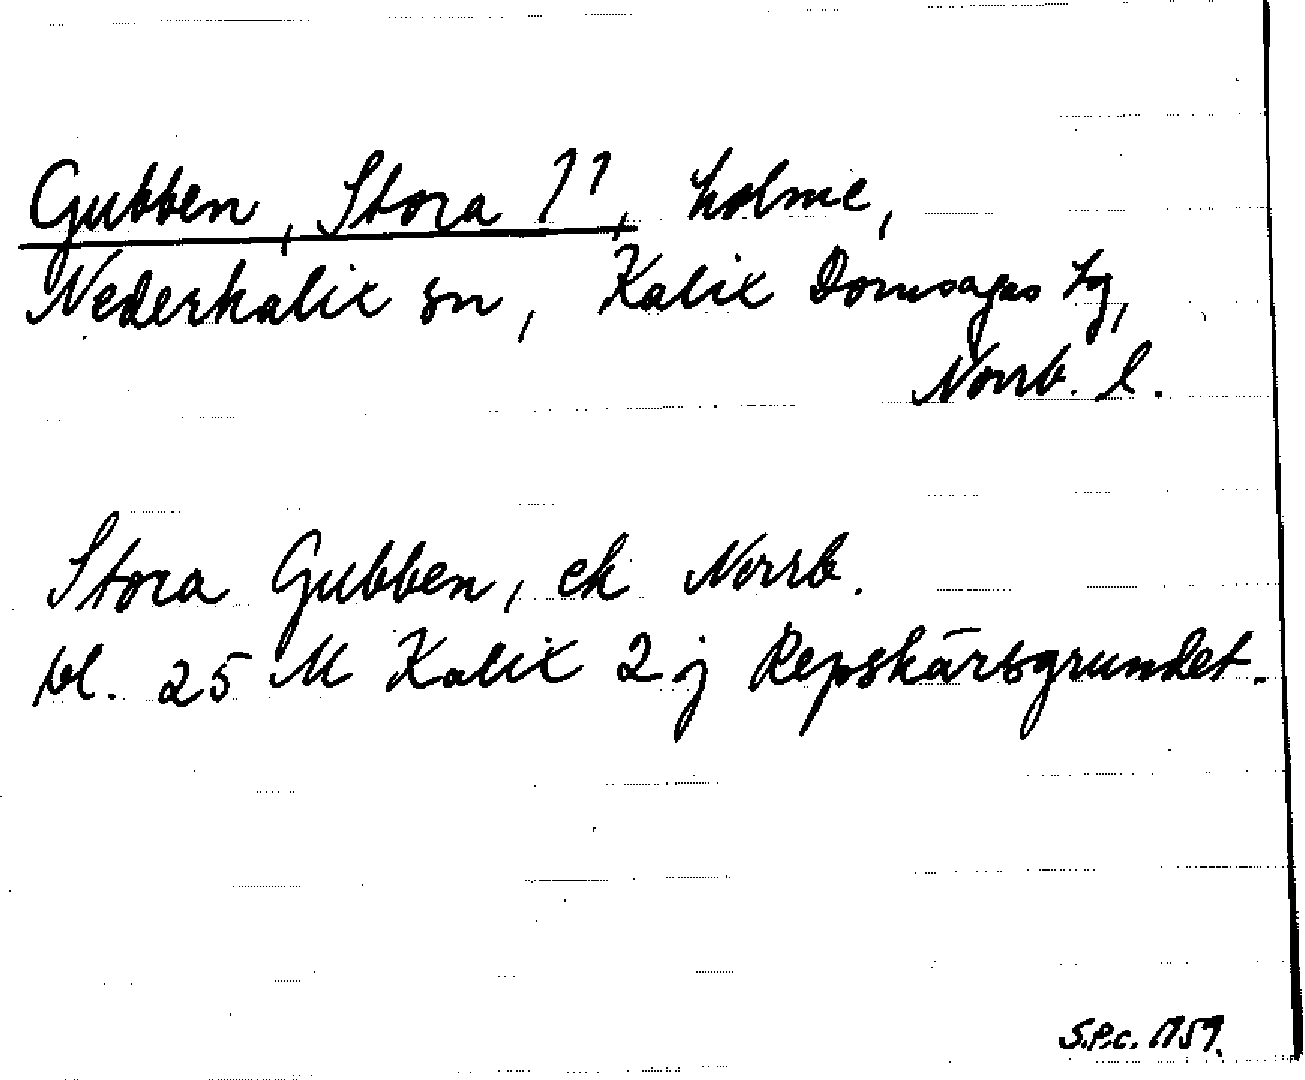 Gubben, Stora ??, holme,
Nederkalix sn, Kalix Domsagas tg,
Norrb. l.
Stora Gubben, ek Norrb.
bl. 25 M Kalix 2 j Repskärsgrundet.
S.P.c. 1959.